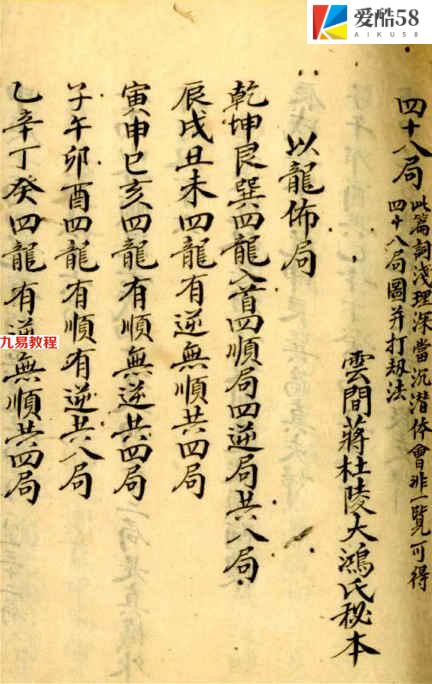 爱酷58
AIKU58
四十八局
此篇詞淺理深當沉潜体會非一覧可得
四十八局圖并打刼法
雲間蔣杜陵大鴻氏秘本
以龍佈局
乾坤艮巽四龍入首四順局四逆局共八局
辰戌丑未四龍有逆無順共四局
寅申巳亥四龍有順無逆共四局
子午卯酉四龍有順有逆共八局
乙辛丁癸四龍有逆無順共四局
九易教程